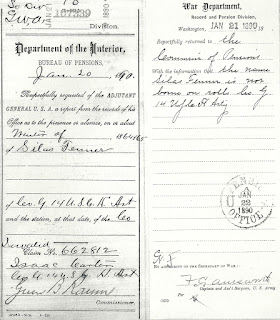 Division.
Department of the Interior,
BUREAU OF PENSIONS,
Jan. 20, 1890.
Respectfully requested of the ADJUTANT
GENERAL U.S.A. a report from the records of his
Office as to the presence or absence, on or about
Winter of 1864 & 65
of Silas Fenner
of Co. G, 14 U.S.C. H. Art
and the station, at that date, of the Co
Invalid
Claim No. 662812
Isaac Carton
Co G 14 U.S. C. H. Art
Green B. Raum
Commissioner.
War Department,
Record and Pension Division,
Washington, JAN 21 1890, 18
Respectfully returned to the
Commr. of Pensions
with the information that the name
Silas Fenner is not
borne on rolls Co. G
14 U.S.C. H. Arty
JAN
22
1890
OFFICE
BY AUTHORITY OF THE SECRETARY OF WAR:
F. C. Ainsworth
Captain and Ass't Surgeon, U.S. Army